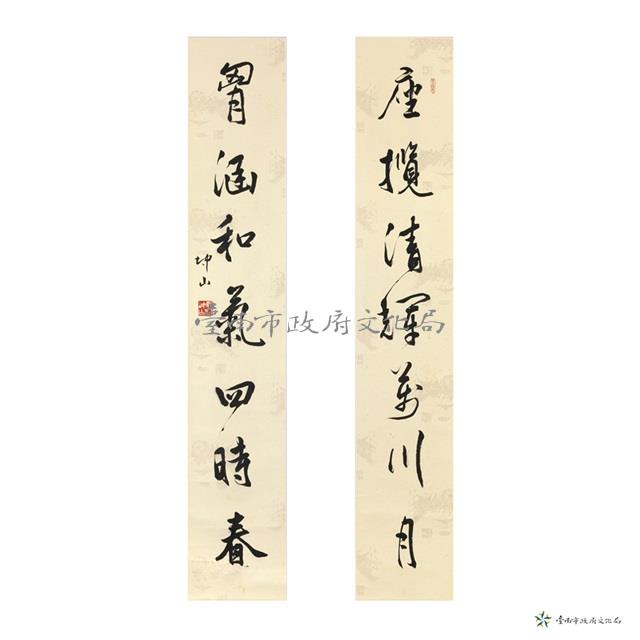 座攬清輝萬川月
胷涵和氣四時春
坤山
臺南市政府文化局
臺南市政府文化局